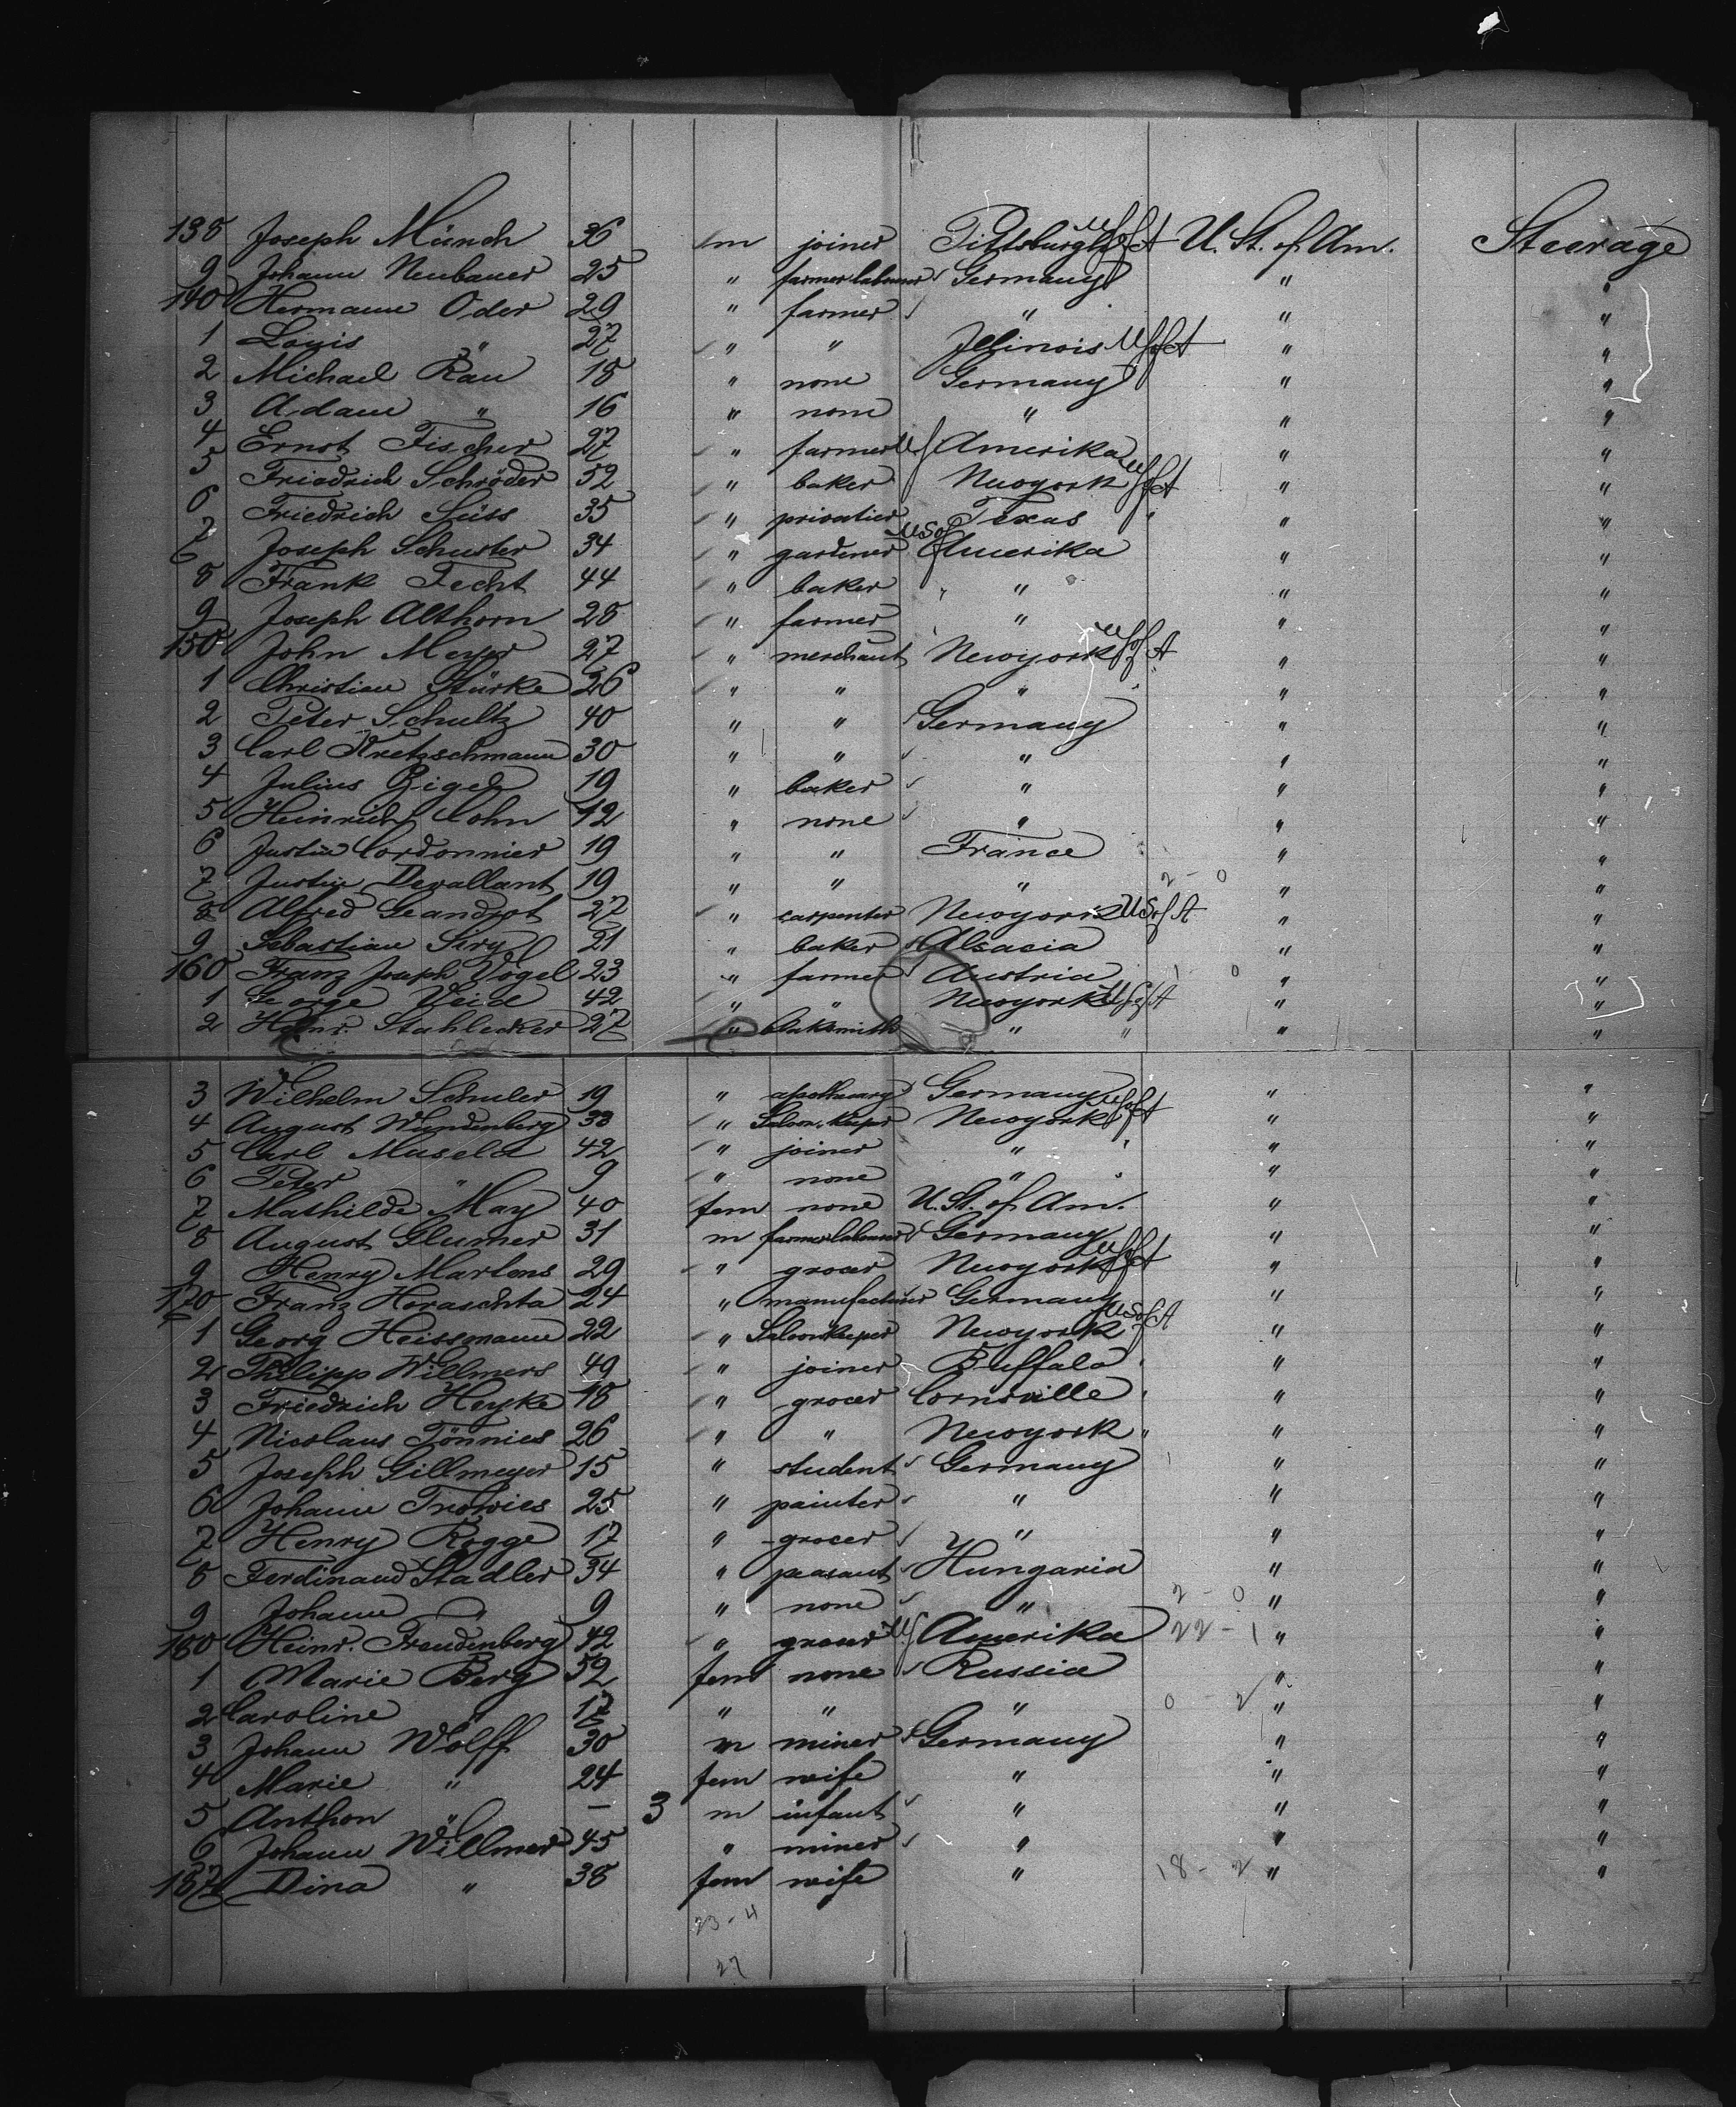 138 Joseph Münch 36 m joiner Pittsburgh U S of A U. St. of Am. Steerage
9 Johann Neubauer 25 " farmer labourer Germany " "
140 Hermann Oder 29 " farmer " " "
1 Louis " 27 " " Illinois U S of A " "
2 Michael Rau 18 " none Germany " "
3 Adam " 16 " none " " "
4 Ernst Fischer 27 " farmer U S Amerika " "
5 Friedrich Schröder 52 " baker Newyork U S of A " "
6 Friedrich Süss 35 " privatier Texas " " "
7 Joseph Schuster 34 " gardener U S of Amerika " "
8 Frank Fecht 44 " baker " " "
9 Joseph Althorn 28 " farmer " " "
150 John Meyer 27 " merchant Newyork U S of A " "
1 Christian Stürke 26 " " " " "
2 Peter Schultz 40 " " Germany " "
3 Carl Kretzschmann 30 " " " " "
4 Julius 19 " baker " " "
5 Heinrich Cohn 12 " none " " "
6 Justin Cordonnier 19 " " France " "
7 Justin Devallant 19 " " " 2 - 0 " "
8 Alfred Geandrot 27 " carpenter Newyork U S of A " "
9 Sebastian Siry 21 " baker Alsacia " "
160 Franz Joseph Vogel 23 " farmer Austria 1 - 0 " "
1 George 42 " " Newyork U S of A " "
2 Heinr. Stahlecker 27 " blaksmith " " " "
3 Wilhelm Schuler 19 " apothecary Germany " "
4 August Wundenberg 38 " Saloon-Keeper Newyork U S of A " "
5 Carl Museld 42 " joiner " " " "
6 Peter " 9 " none " " " "
7 Mathilde May 40 fem none U. St. of Am. " "
8 August Glumer 31 m farmer labourer Germany " "
9 Henry Martens 29 " grocer Newyork U S of A " "
170 Franz Horaschta 24 " manufacturer Germany " "
1 Georg Heissmann 22 " Saloonkeeper Newyork U S of A " "
2 Philipp Willmers 49 " joiner Buffalo " " "
3 Friedrich Heyke 18 " grocer Cornsville " " "
4 Nicolaus Tönnies 26 " " Newyork " " "
5 Joseph Gillmeyer 15 " student Germany " "
6 Johann 25 " painter " " "
7 Henry Rogge 17 " grocer " " "
8 Ferdinand Stadler 34 " peasant Hungaria " "
9 Johann " 9 " none " 2 - 0 " "
180 Heinr. Freudenberg 42 " grocer U S Amerika 22 - 1 " "
1 Marie Berg 52 fem none Russia " "
2 Caroline " 17 " " " 0 - 2 " "
3 Johann Wolff 30 m miner Germany " "
4 Marie " 24 fem wife " " "
5 Anthon " - 3 m infant " " "
6 Johann Willmer 45 " miner " " "
187 Dina " 38 fem wife " 18 - 2 " "
23 - 4
27